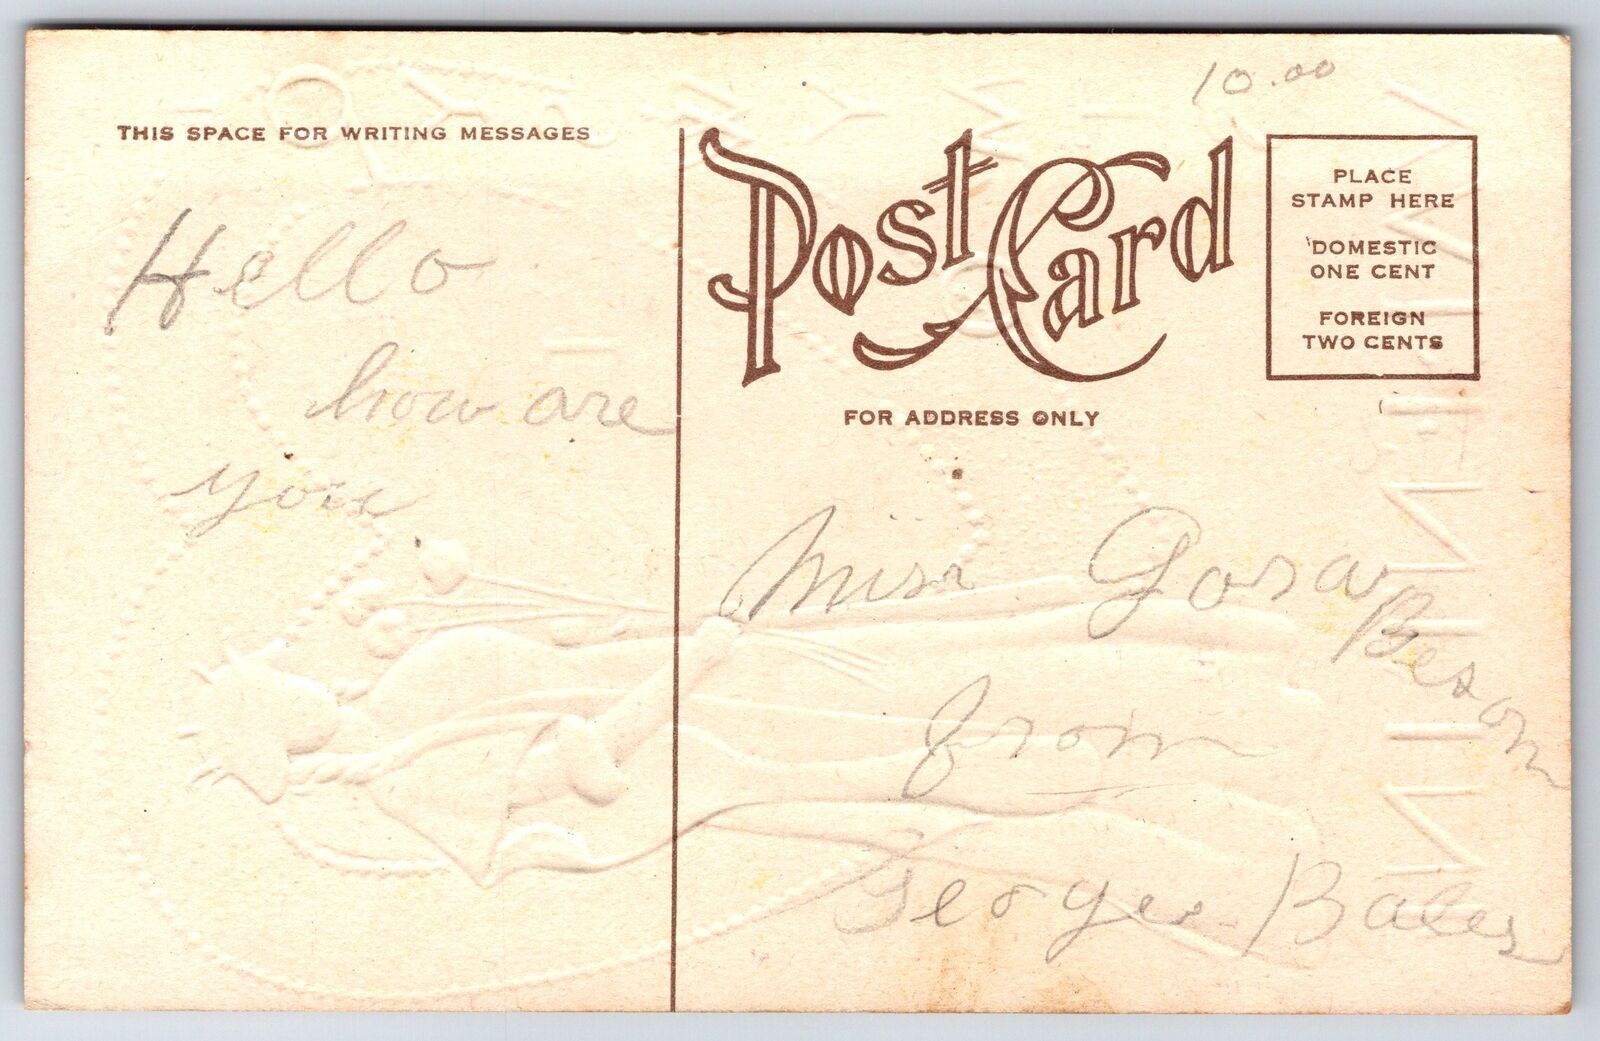 10.00
THIS SPACE FOR WRITING MESSAGES
Post Card
PLACE
STAMP HERE
DOMESTIC
ONE CENT
FOREIGN
TWO CENTS
FOR ADDRESS ONLY
Hello
how are
you
Miss Gora Beson
from
George Bales